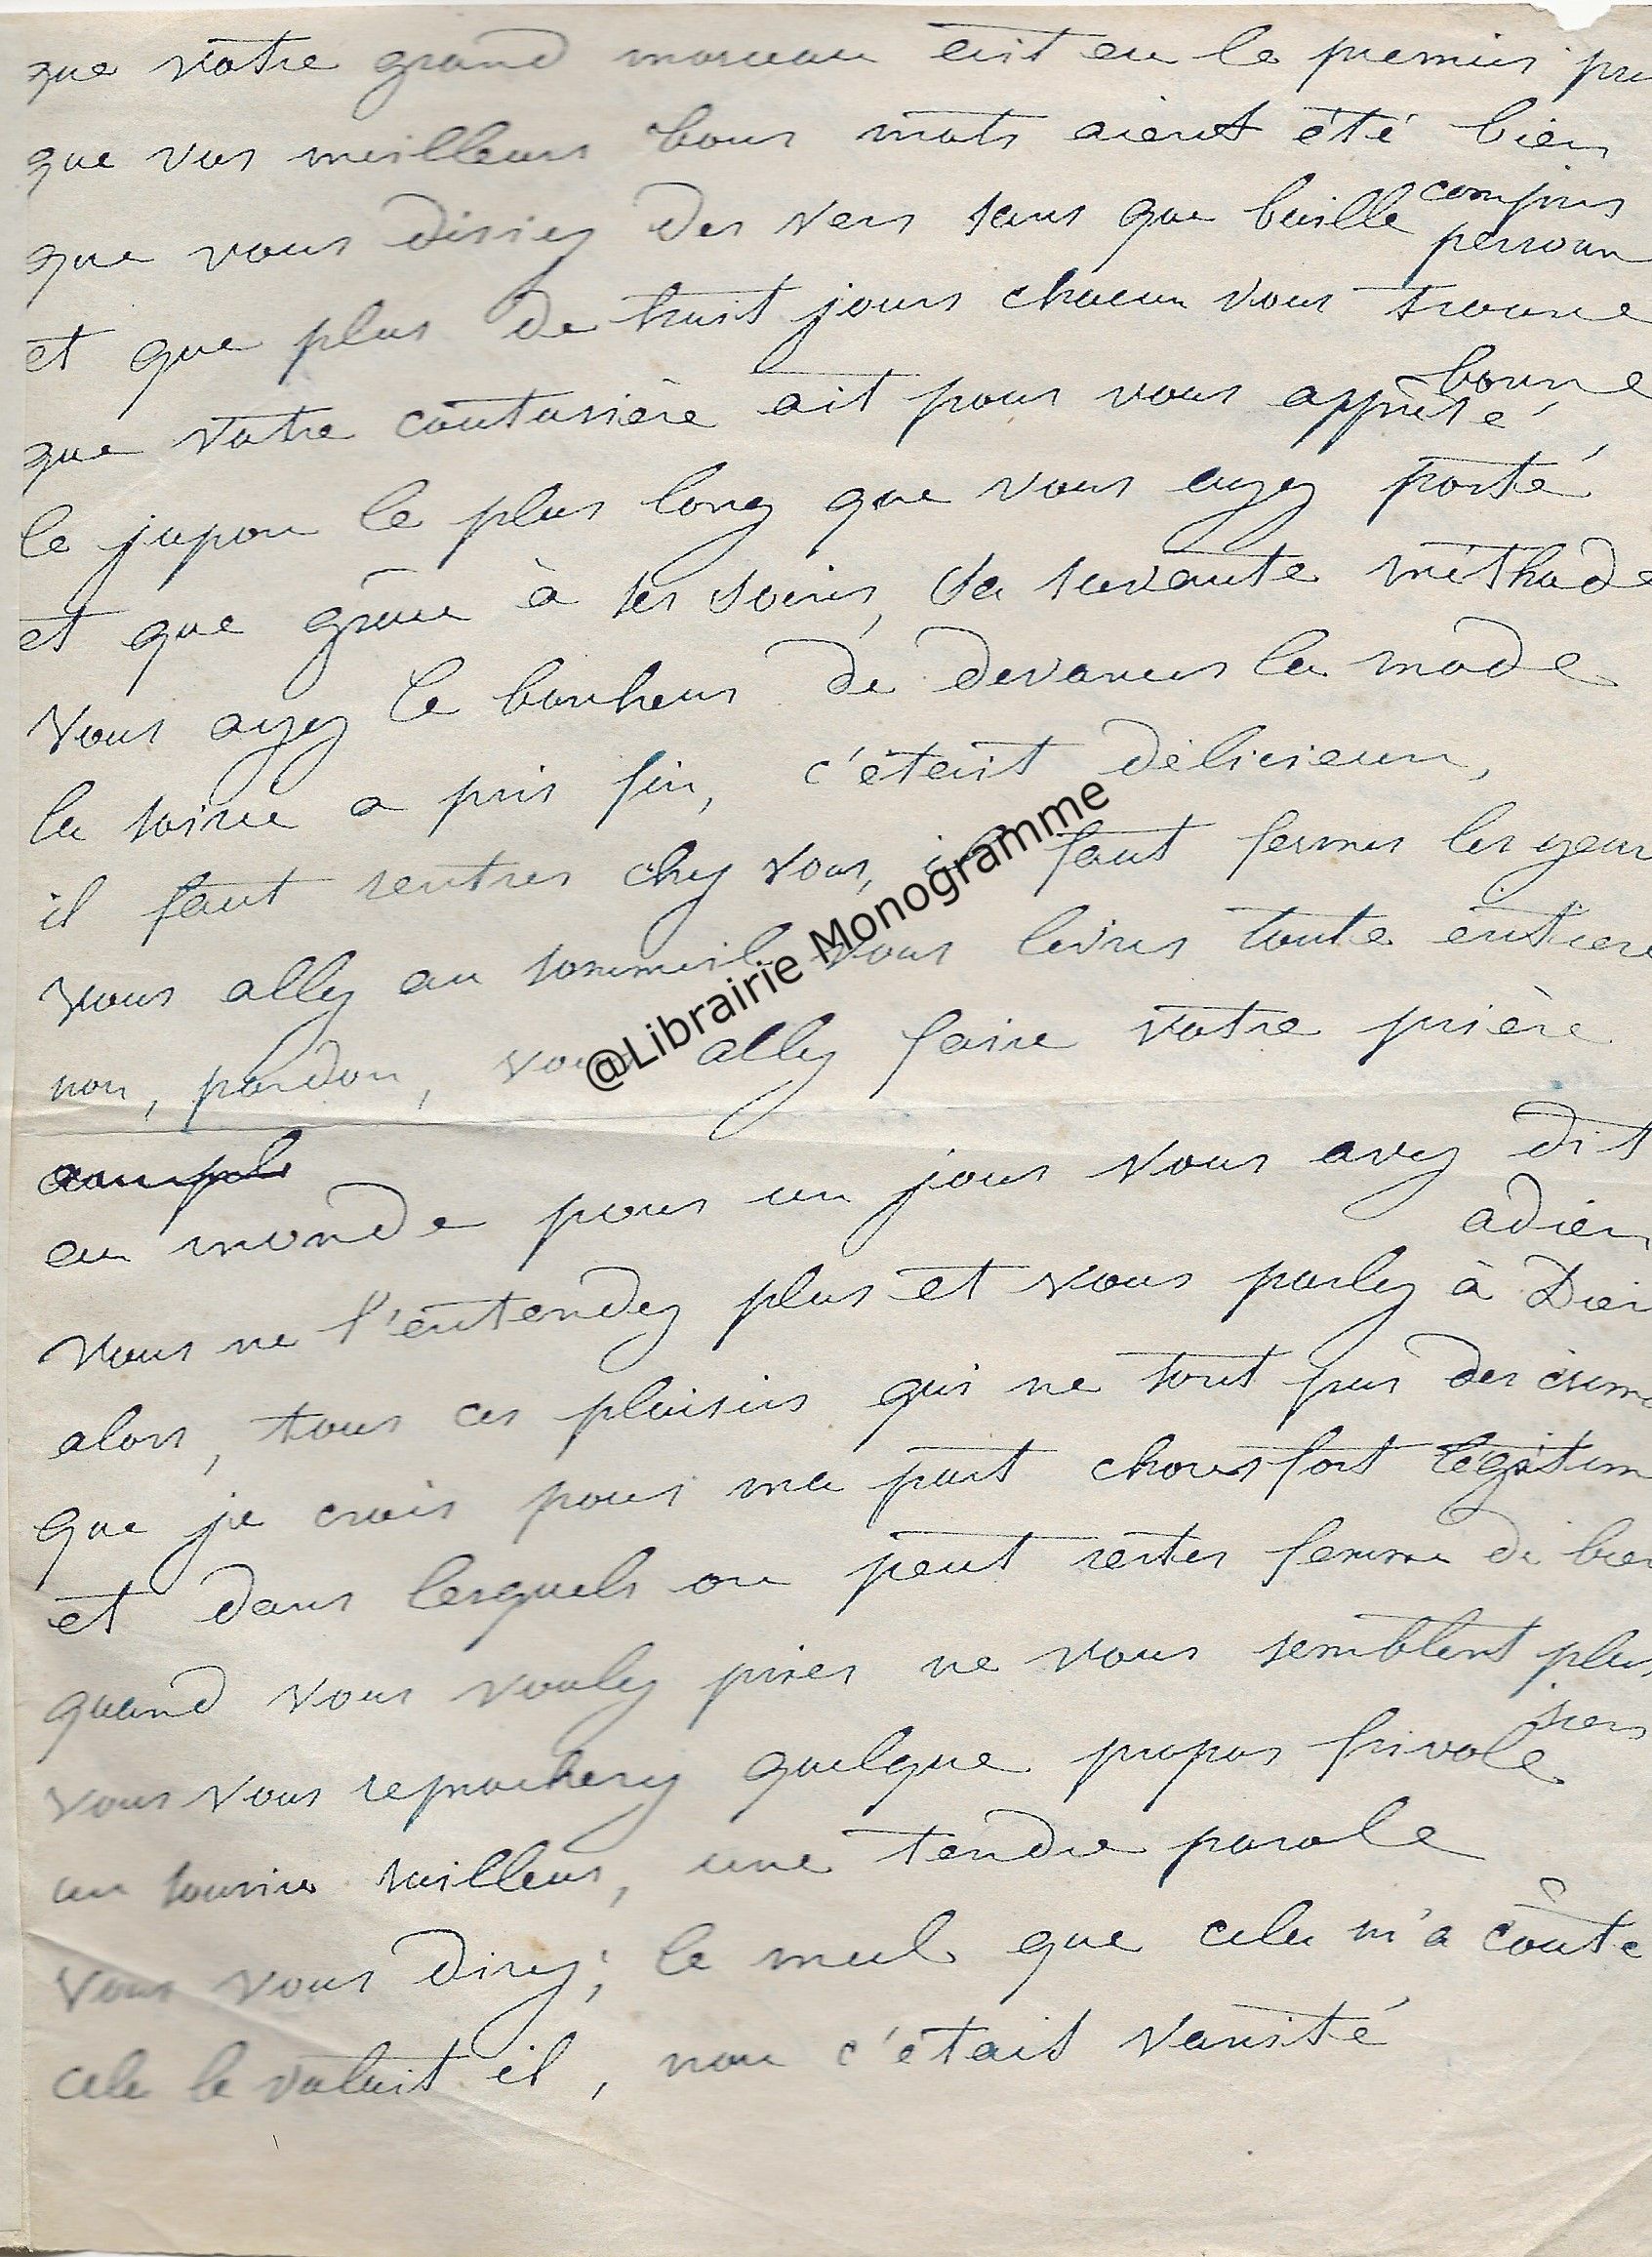 que votre grand morceau eut eu le premier pri
que vos meilleurs bons mots aient été bien
compris
que vous disiez des vers sans que baille personn
et que plus de huit jours chacun vous trouve
bonne
que votre couturière ait pour vous apprêté
le jupon le plus long que vous ayez porté
et que grâce à ses soins, sa savante méthode
vous ayez le bonheur de devancer la mode
la soirée a pris fin, c'était délicieux,
il faut rentrer chez vous, il faut fermer les yeux
vous allez au sommeil vous livrer toute entière
non, pardon, vous allez faire votre prière
@Librairie Monogramme
au monde pour un jour vous avez dit
adieu
vous ne l'entendez plus et vous parlez à Dieu
alors, tous ces plaisirs qui ne sont pas des crime
que je crois pour ma part choses fort légitim
et dans lesquels on peut rester femme de bien
quand vous voulez prier ne vous semblent plus
rien
vous vous reprocherez quelque propos frivole
un sourire railleur, une tendre parole
vous vous direz; le mal que cela m'a coûté
cela le valait il, non c'était vanité